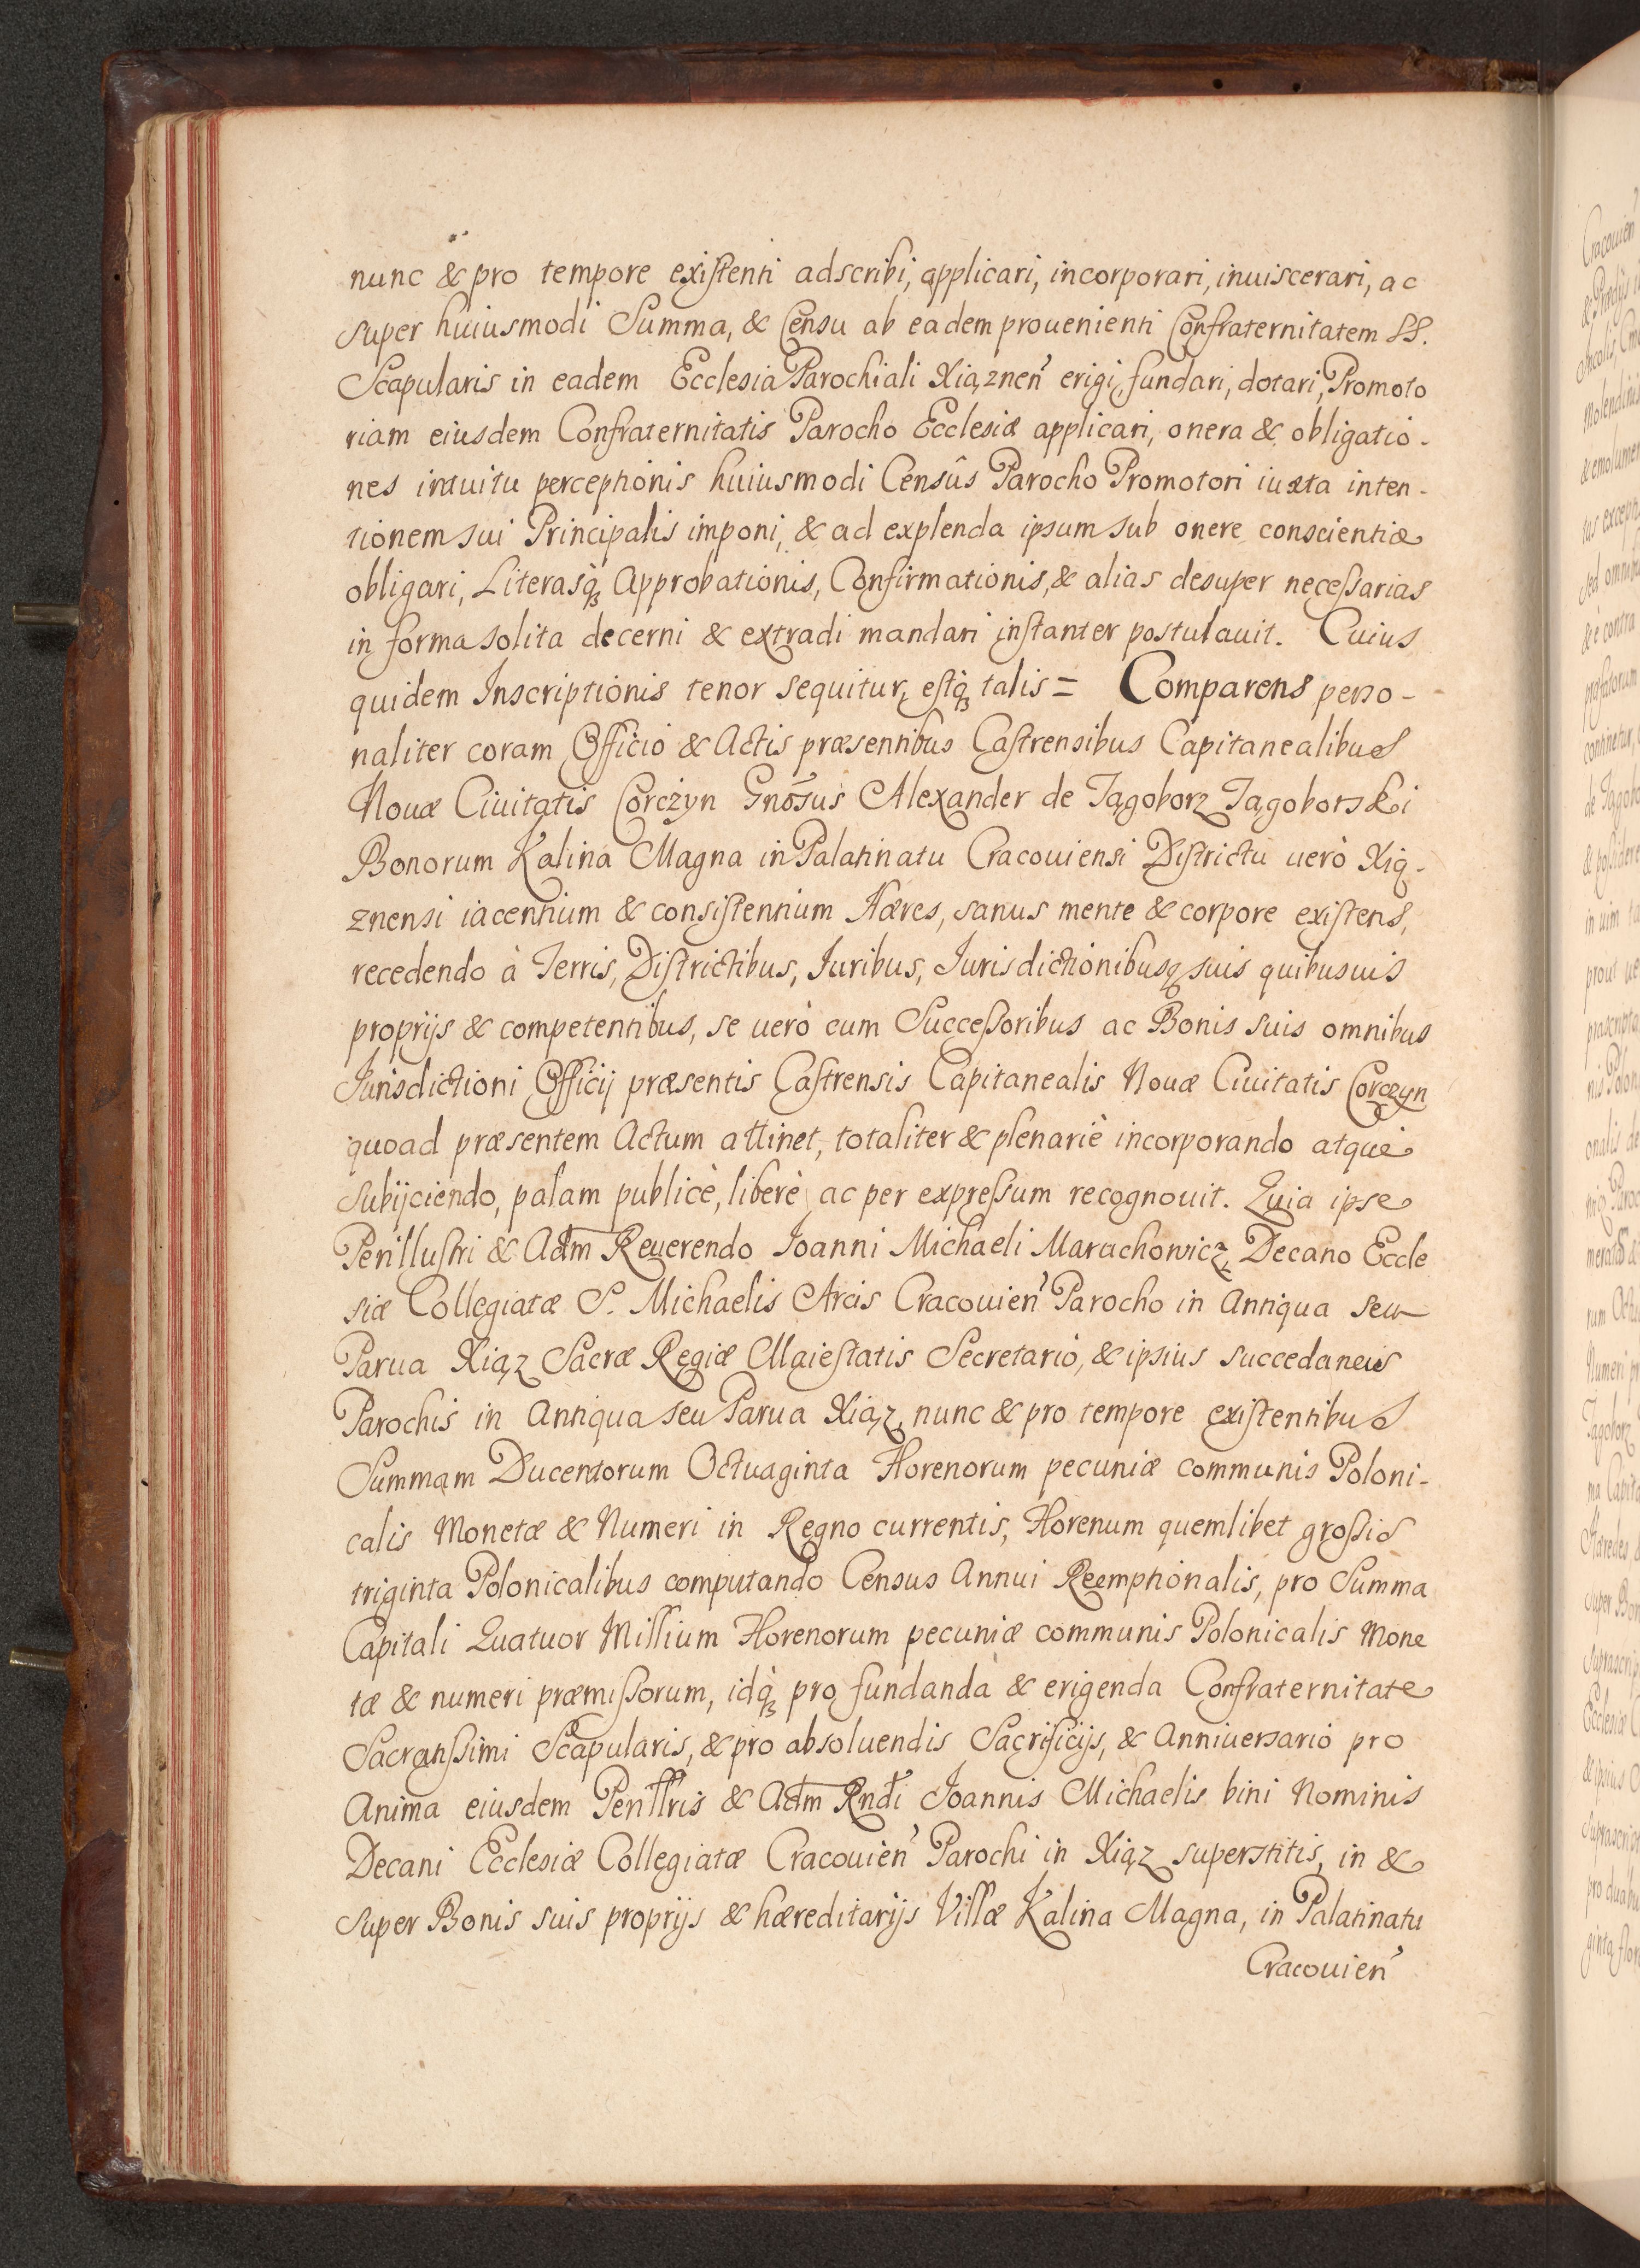 nunc & pro tempore existenti adscribi, applicari, incorporari, inuiscerari, ac
super huiusmodi Summa, & Censu ab eadem prouenienti Confraternitatem SS.
Scapularis in eadem Ecclesia Parochiali Xiąznen̄ erigi, fundari, dotari, Promoto
riam eiusdem Confraternitatis Parocho Ecclesiæ applicari, onera & obligatio-
nes intuitu perceptionis huiusmodi Censûs Parocho Promotori iuxta inten-
tionem sui Principalis imponi, & ad explenda ipsum sub onere conscientiæ
obligari, Literasq̀ꝫ Approbationis, Confirmationis, & alias desuper necessarias
in forma solita decerni & extradi mandari instanter postulauit. Cuius
quidem Inscriptionis tenor sequitur, estq̀ꝫ talis = Comparens perso-
naliter coram Officio & Actis præsentibus Castrensibus Capitanealibus
Nouæ Ciuitatis Corczyn Gnōsus Alexander de Jagoborz Jagoborski
Bonorum Kalina Magna in Palatinatu Cracouiensi Districtu uerò Xią-
znensi iacentium & consistentium Hæres, sanus mente & corpore existens,
recedendo à Terris, Districtibus, Iuribus, Iurisdictionibusq suis quibusuis
proprijs & competentibus, se uerò cum Successoribus ac Bonis suis omnibus
Jurisdictioni Officij præsentis Castrensis Capitanealis Nouæ Ciuitatis Corczyn
quoad præsentem Actum attinet, totaliter & plenariè incorporando atque
subijciendo, palam publicè, liberè ac per expressum recognouit. Quia ipse
Perillustri & Adm Reuerendo Joanni Michaeli Marachowicz, Decano Eccle
siæ Collegiatæ S. Michaelis Arcis Cracouien̄ Parocho in Antiqua seu
Parua Xiąz Sacræ Regiæ Maiestatis Secretario, & ipsius succedaneis
Parochis in Antiqua seu Parua Xiąz, nunc & pro tempore existentibus
Summam Ducentorum Octuaginta Florenorum pecuniæ communis Poloni-
calis Monetæ & Numeri in Regno currentis, Florenum quemlibet grossis
triginta Polonicalibus computando Census Annui Reemptionalis, pro Summa
Capitali Quatuor Millium Florenorum pecuniæ communis Polonicalis Mone
tæ & numeri præmissorum, idq̀ꝫ pro fundanda & erigenda Confraternitate
Sacratissimi Scapularis, & pro absoluendis Sacrificijs, & Anniuersario pro
Anima eiusdem Perillris & Adm Rndi Joannis Michaelis bini Nominis
Decani Ecclesiæ Collegiatæ Cracouien̄ Parochi in Xiąz superstitis, in &
super Bonis suis proprijs & hæreditarijs Villæ Kalina Magna, in Palatinatu
Cracouien̄